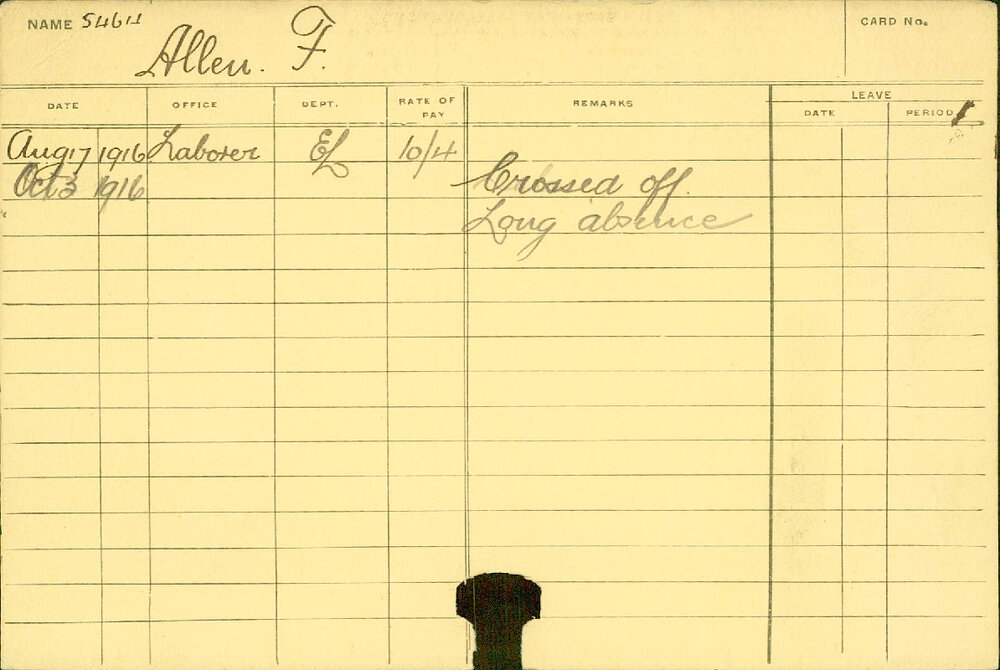 NAME 5464 Allen. F. CARD No.
DATE OFFICE DEPT. RATE OF PAY REMARKS LEAVE
DATE PERIOD
Aug 17 1916 Laborer EL 10/4
Oct 3 1916 Crossed off.
Long absence